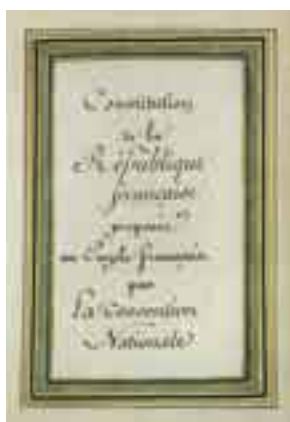 Constitution
de la
République
française
proposée
au Peuple français
par
La Convention
Nationale